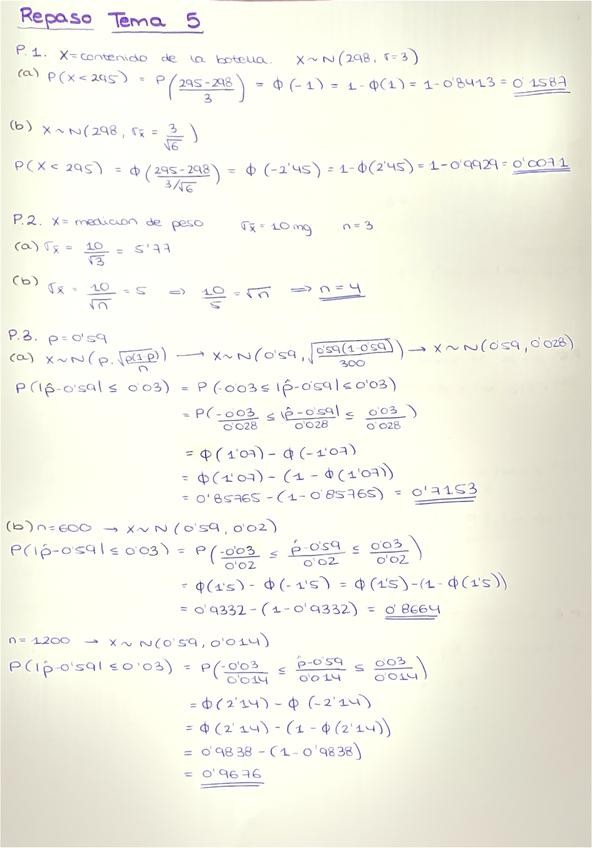 Repaso Tema 5
P.1. X=contenido de la botella. X~N(298, σ=3)
(a) P(X<295) = P(295-298/3) = Φ(-1) = 1-Φ(1) = 1-0'8413 = 0'1587
(b) X~N(298, σx̄ = 3/√6)
P(X<295) = Φ(295-298/3/√6) = Φ(-2'45) = 1-Φ(2'45) = 1-0'9929 = 0'0071
P.2. X= medicion de peso σx̄ = 10mg n=3
(a) σx̄ = 10/√3 = 5'77
(b) σx̄ = 10/√n = 5 ⇒ 10/5 = √n ⇒ n=4
P.3. p=0'59
(a) X~N(p, √p(1-p)/n) → X~N(0'59, √0'59(1-0'59)/300) → X~N(0'59, 0'028)
P(|p̂-0'59| ≤ 0'03) = P(-0'03 ≤ |p̂-0'59| ≤ 0'03)
= P(-0'03/0'028 ≤ |p̂-0'59|/0'028 ≤ 0'03/0'028)
= Φ(1'07) - Φ(-1'07)
= Φ(1'07) - (1 - Φ(1'07))
= 0'85765 - (1-0'85765) = 0'7153
(b) n=600 → X~N(0'59, 0'02)
P(|p̂-0'59| ≤ 0'03) = P(-0'03/0'02 ≤ p̂-0'59/0'02 ≤ 0'03/0'02)
= Φ(1'5) - Φ(-1'5) = Φ(1'5)-(1-Φ(1'5))
= 0'9332-(1-0'9332) = 0'8664
n=1200 → X~N(0'59, 0'014)
P(|p̂-0'59| ≤ 0'03) = P(-0'03/0'014 ≤ p̂-0'59/0'014 ≤ 0'03/0'014)
= Φ(2'14) - Φ(-2'14)
= Φ(2'14) - (1 - Φ(2'14))
= 0'9838 - (1-0'9838)
= 0'9676